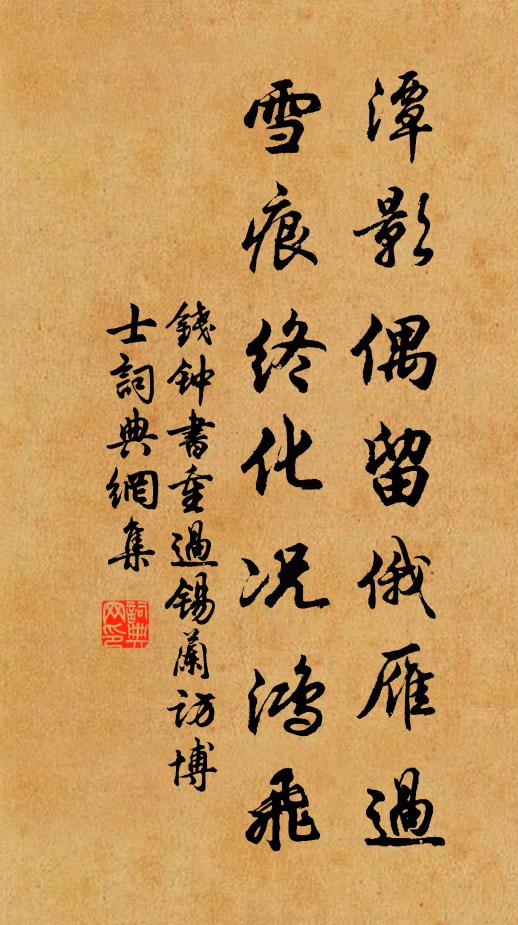 潭影偶留俄雁過
雪痕終化况鴻飛
錢鈡書重過锡蘭访博
士詞典網集
詞典網印